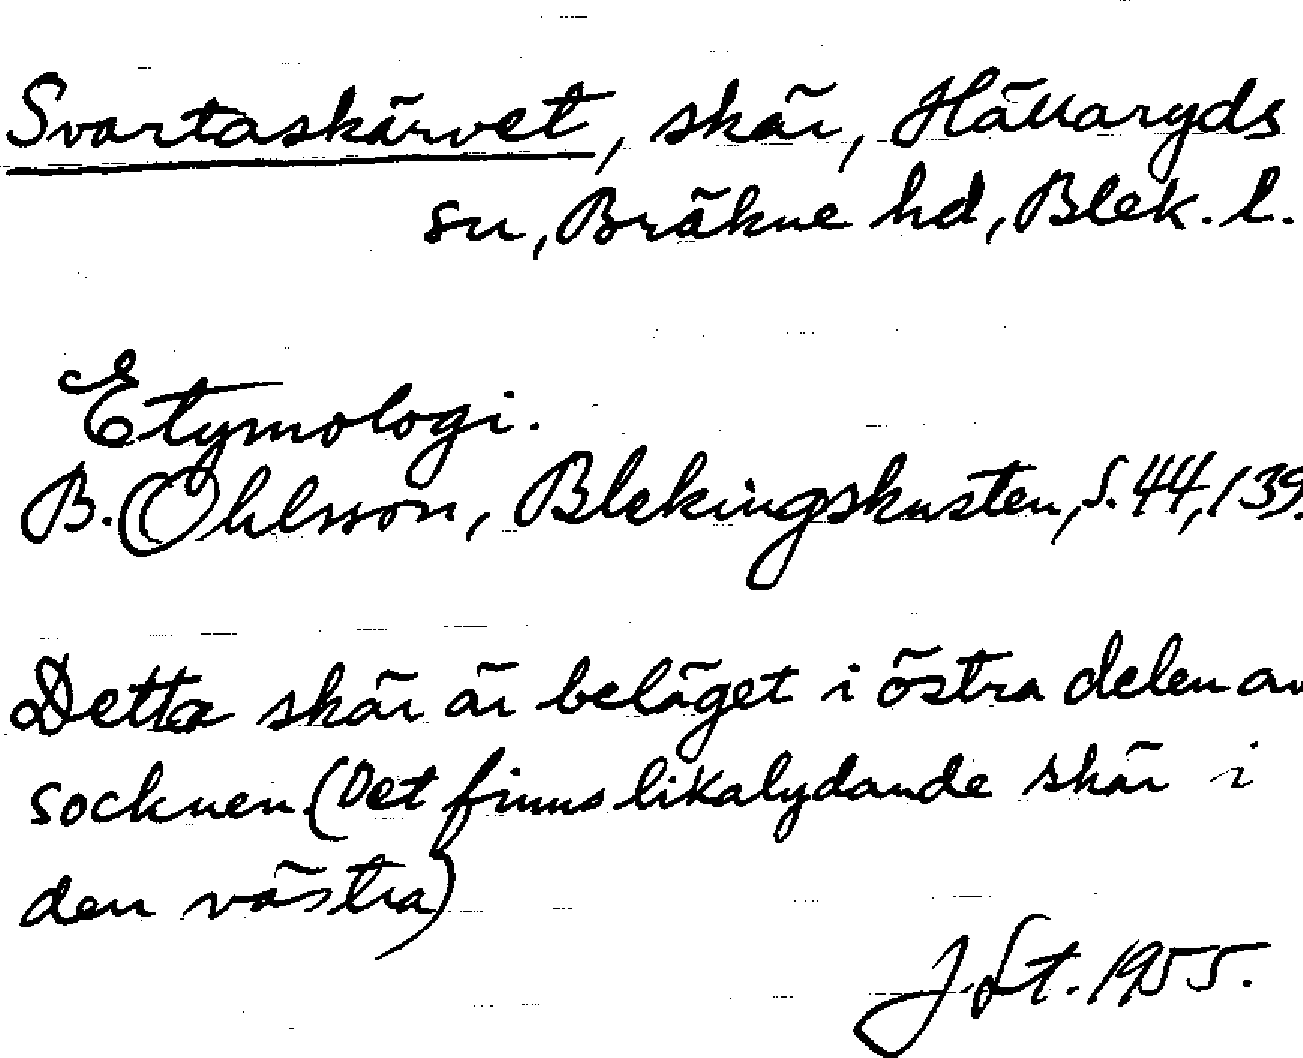 Svartaskärvet, skär, Hällaryds
sn, Bräkne hd, Blek. l.
Etymologi.
B. Ohlsson, Blekingskusten, s. 44, 139.
Detta skär är beläget i östra delen av
socknen (Det finns likalydande skär i
den västra)
1955.